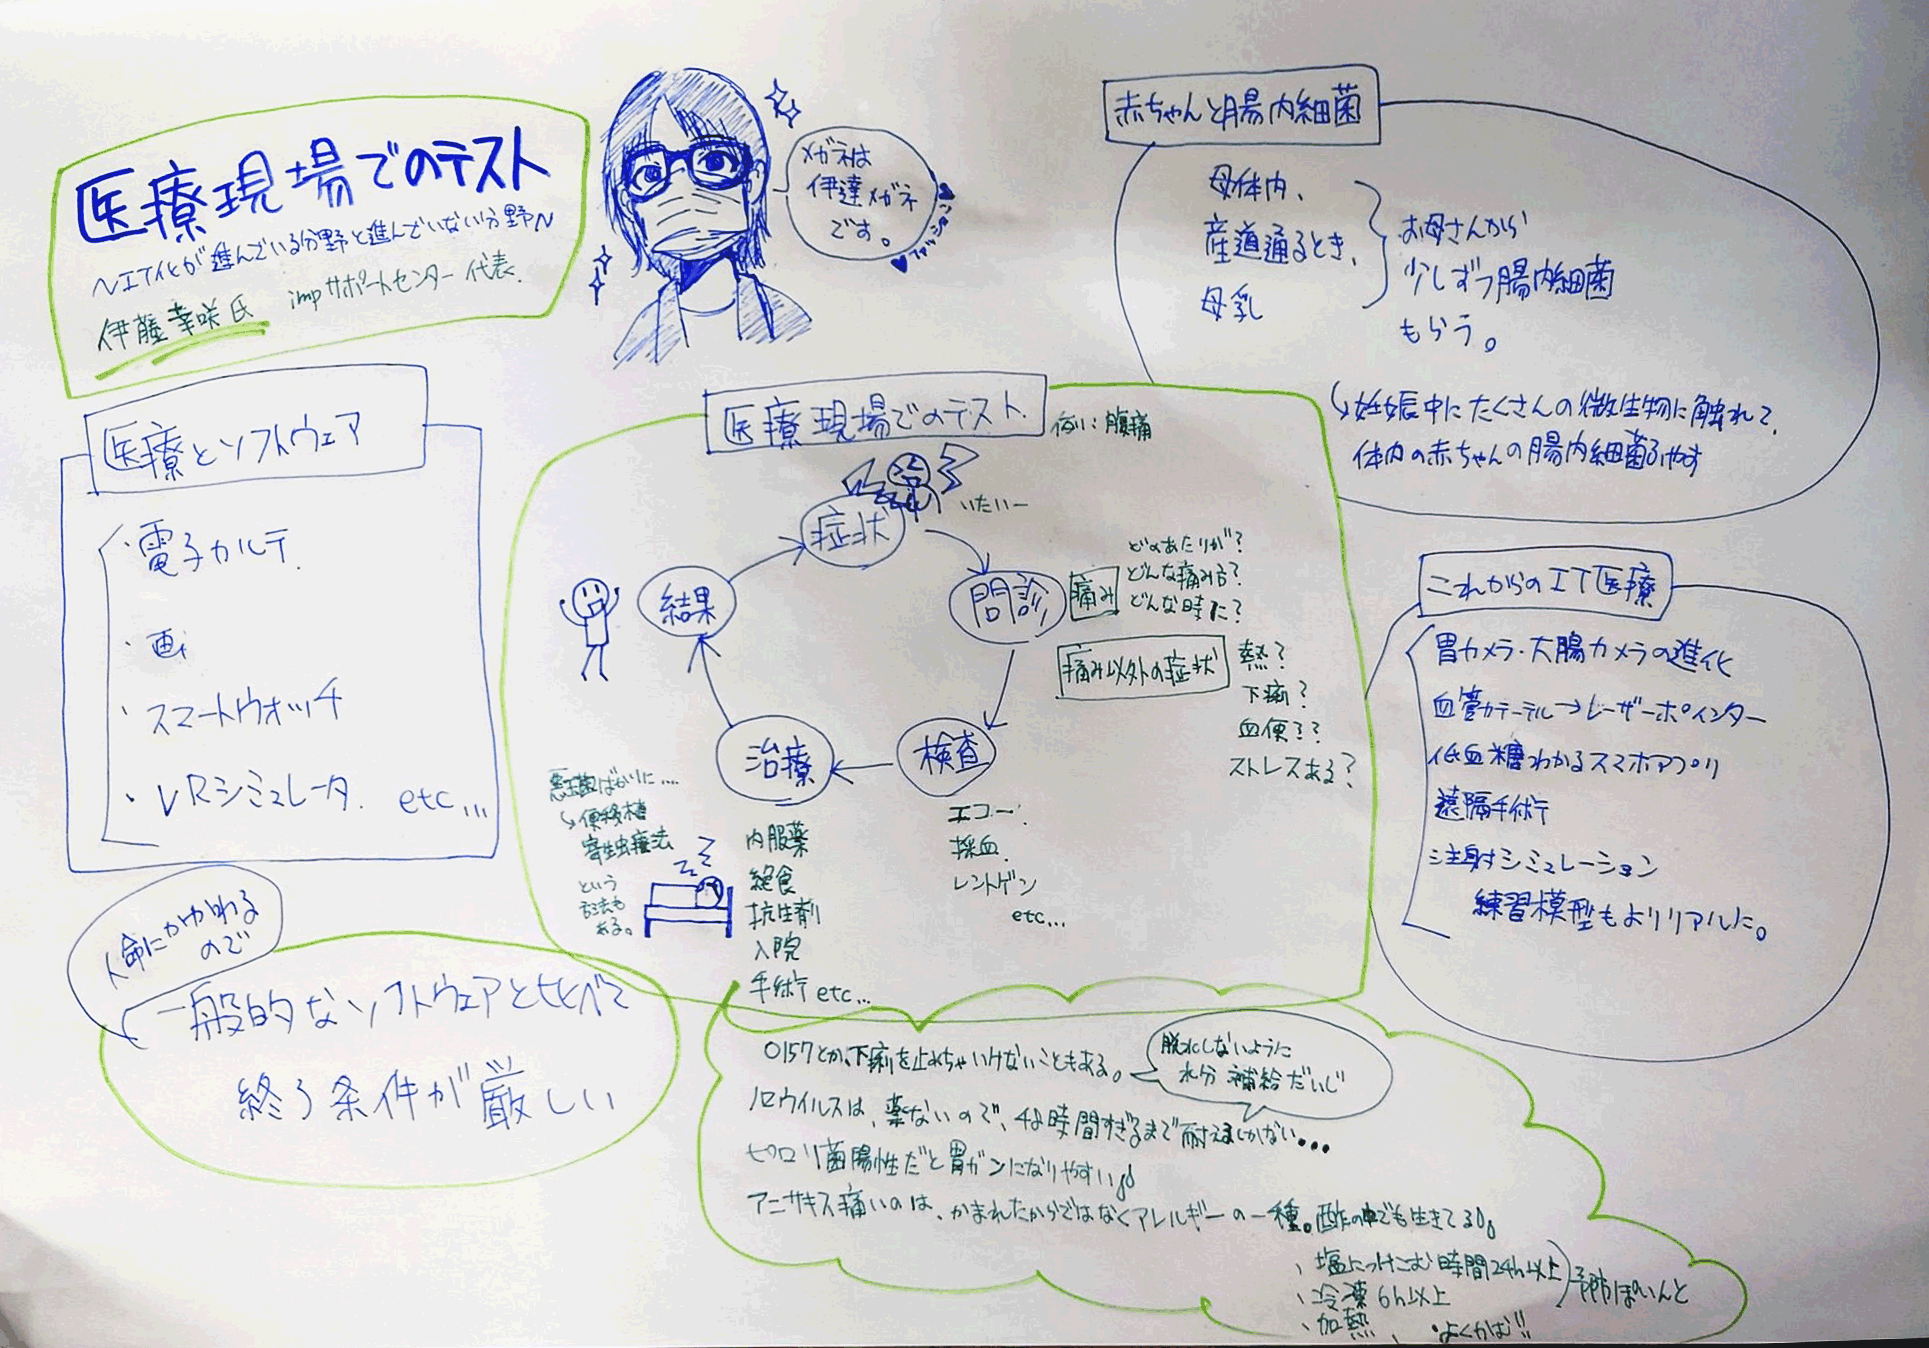 医療現場でのテスト
〜IT化が進んでいる分野と進んでいない分野〜
伊藤幸咲氏 impサポートセンター代表.
メガネは
伊達メガネ
です。
赤ちゃんと腸内細菌
母体内、
産道通るとき、
母乳
お母さんから
少しずつ腸内細菌
もらう。
↳妊娠中にたくさんの微生物に触れて、
体内の赤ちゃんの腸内細菌ふやす
医療とソフトウェア
・電子カルテ.
・画
・スマートウォッチ
・VRシミュレータ. etc...
人命にかかわる
ので
一般的なソフトウェアと比べて
終る条件が厳しい
医療現場でのテスト.
例:腹痛
いたいー
症状
問診
検査
治療
結果
痛み
どのあたりが?
どんな痛み方?
どんな時に?
痛み以外の症状
熱?
下痢?
血便??
ストレスある?
エコー.
採血.
レントゲン
etc...
内服薬
絶食
抗生剤
入院
手術 etc...
悪玉菌ばかりに....
↳便移植
寄生虫療法
という
方法も
ある。
zzz
これからのIT医療
胃カメラ・大腸カメラの進化
血管カテーテル→レーザーポインター
低血糖わかるスマホアプリ
遠隔手術
注射シミュレーション
練習模型もよりリアルに。
O157とか、下痢を止めちゃいけないこともある。
脱水しないように
水分補給だいじ
ノロウイルスは、薬ないので、48時間すぎるまで耐えるしかない...
ピロリ菌陽性だと胃ガンになりやすい
アニサキス痛いのは、かまれたからではなくアレルギーの一種。酢の中でも生きてる
、塩につけこむ時間24h以上
、冷凍6h以上
、加熱、
・よくかむ!!
予防ぽいんと